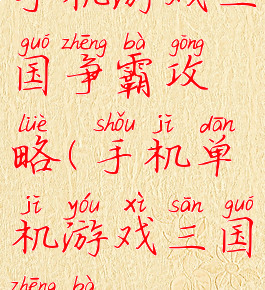 手机游戏三
guó zhēng bà gōng
国争霸攻
lüè shǒu jī dān
略(手机单
jī yóu xì sān guó
机游戏三国
zhēng bà